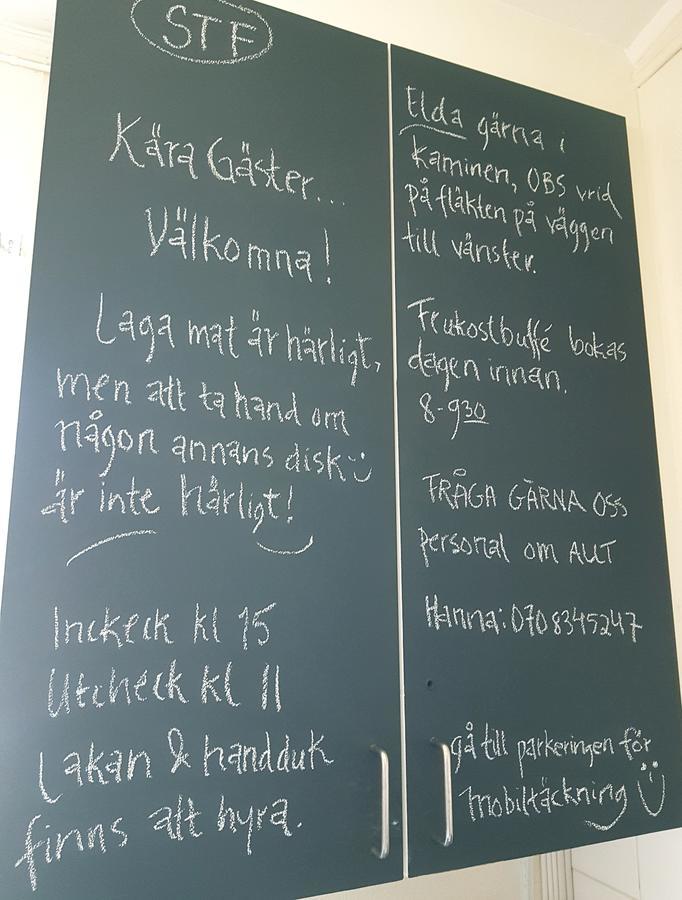 STF
Kära Gäster...
Välkomna!
Laga mat är härligt,
men att ta hand om
någon annans disk
är inte härligt!
Inckeck kl 15
Utcheck kl 11
Lakan & handduk
finns att hyra.
Elda gärna i
kaminen, OBS vrid
på fläkten på väggen
till vänster.
Frukostbuffé bokas
dagen innan.
8-930
FRÅGA GÄRNA OSS
personal om ALLT
Hanna: 0708345247
gå till parkeringen för
mobiltäckning